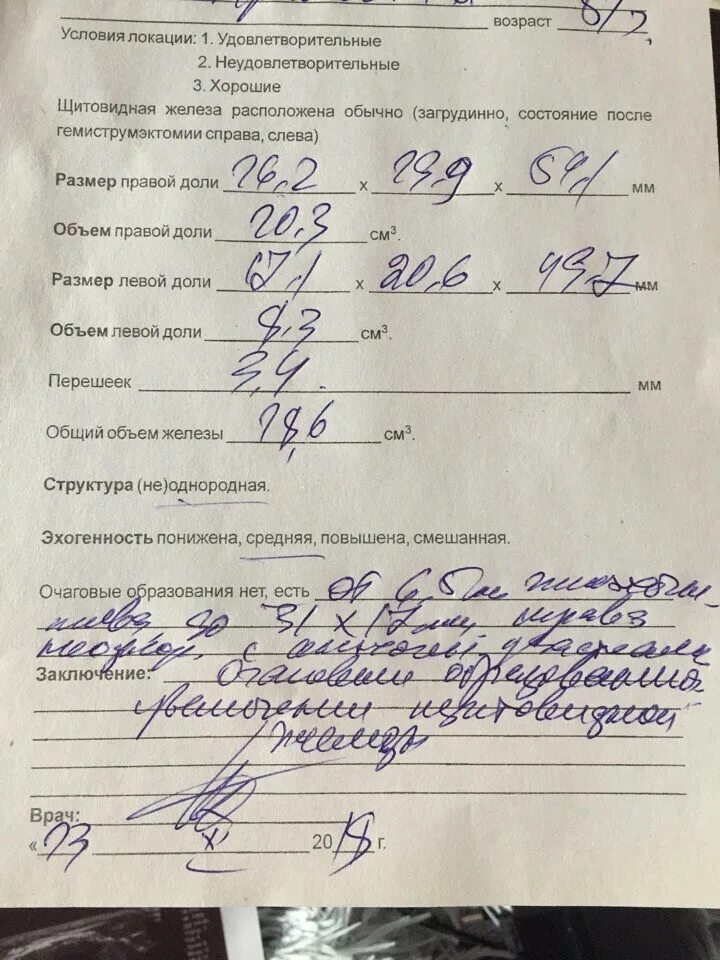 возраст
Условия локации: 1. Удовлетворительные
2. Неудовлетворительные
3. Хорошие
Щитовидная железа расположена обычно (загрудинно, состояние после
гемиструмэктомии справа, слева)
Размер правой доли х х мм
Объем правой доли 20,3 см³.
Размер левой доли 17,1 х 20,6 х 49,7 мм
Объем левой доли 8,3 см³.
Перешеек 3,4 мм
Общий объем железы 28,6 см³.
Структура (не)однородная.
Эхогенность понижена, средняя, повышена, смешанная.
Очаговые образования нет, есть от 6,5 мм
до 31 х 17 мм справа
неоднор. с
Заключение: Очаговые образования
увеличении щитовидной
железы
Врач:
« 23 X 2018 г.